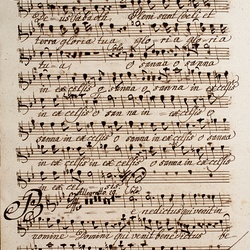 De us Sabaoth Pleni sunt coeli et
terra gloria tua glo ri a glo ri a
tu a Osanna o sanna
in excelsis o sanna o sanna in excelsis
in excelsis o san na in excelsis o
sanna in excelsis o sanna in excelsis o sanna
in excelsis in excelsis osanna in excelsis
in excelsis
Be nedictus qui venit in
nomine Domine qui venit benedictus be